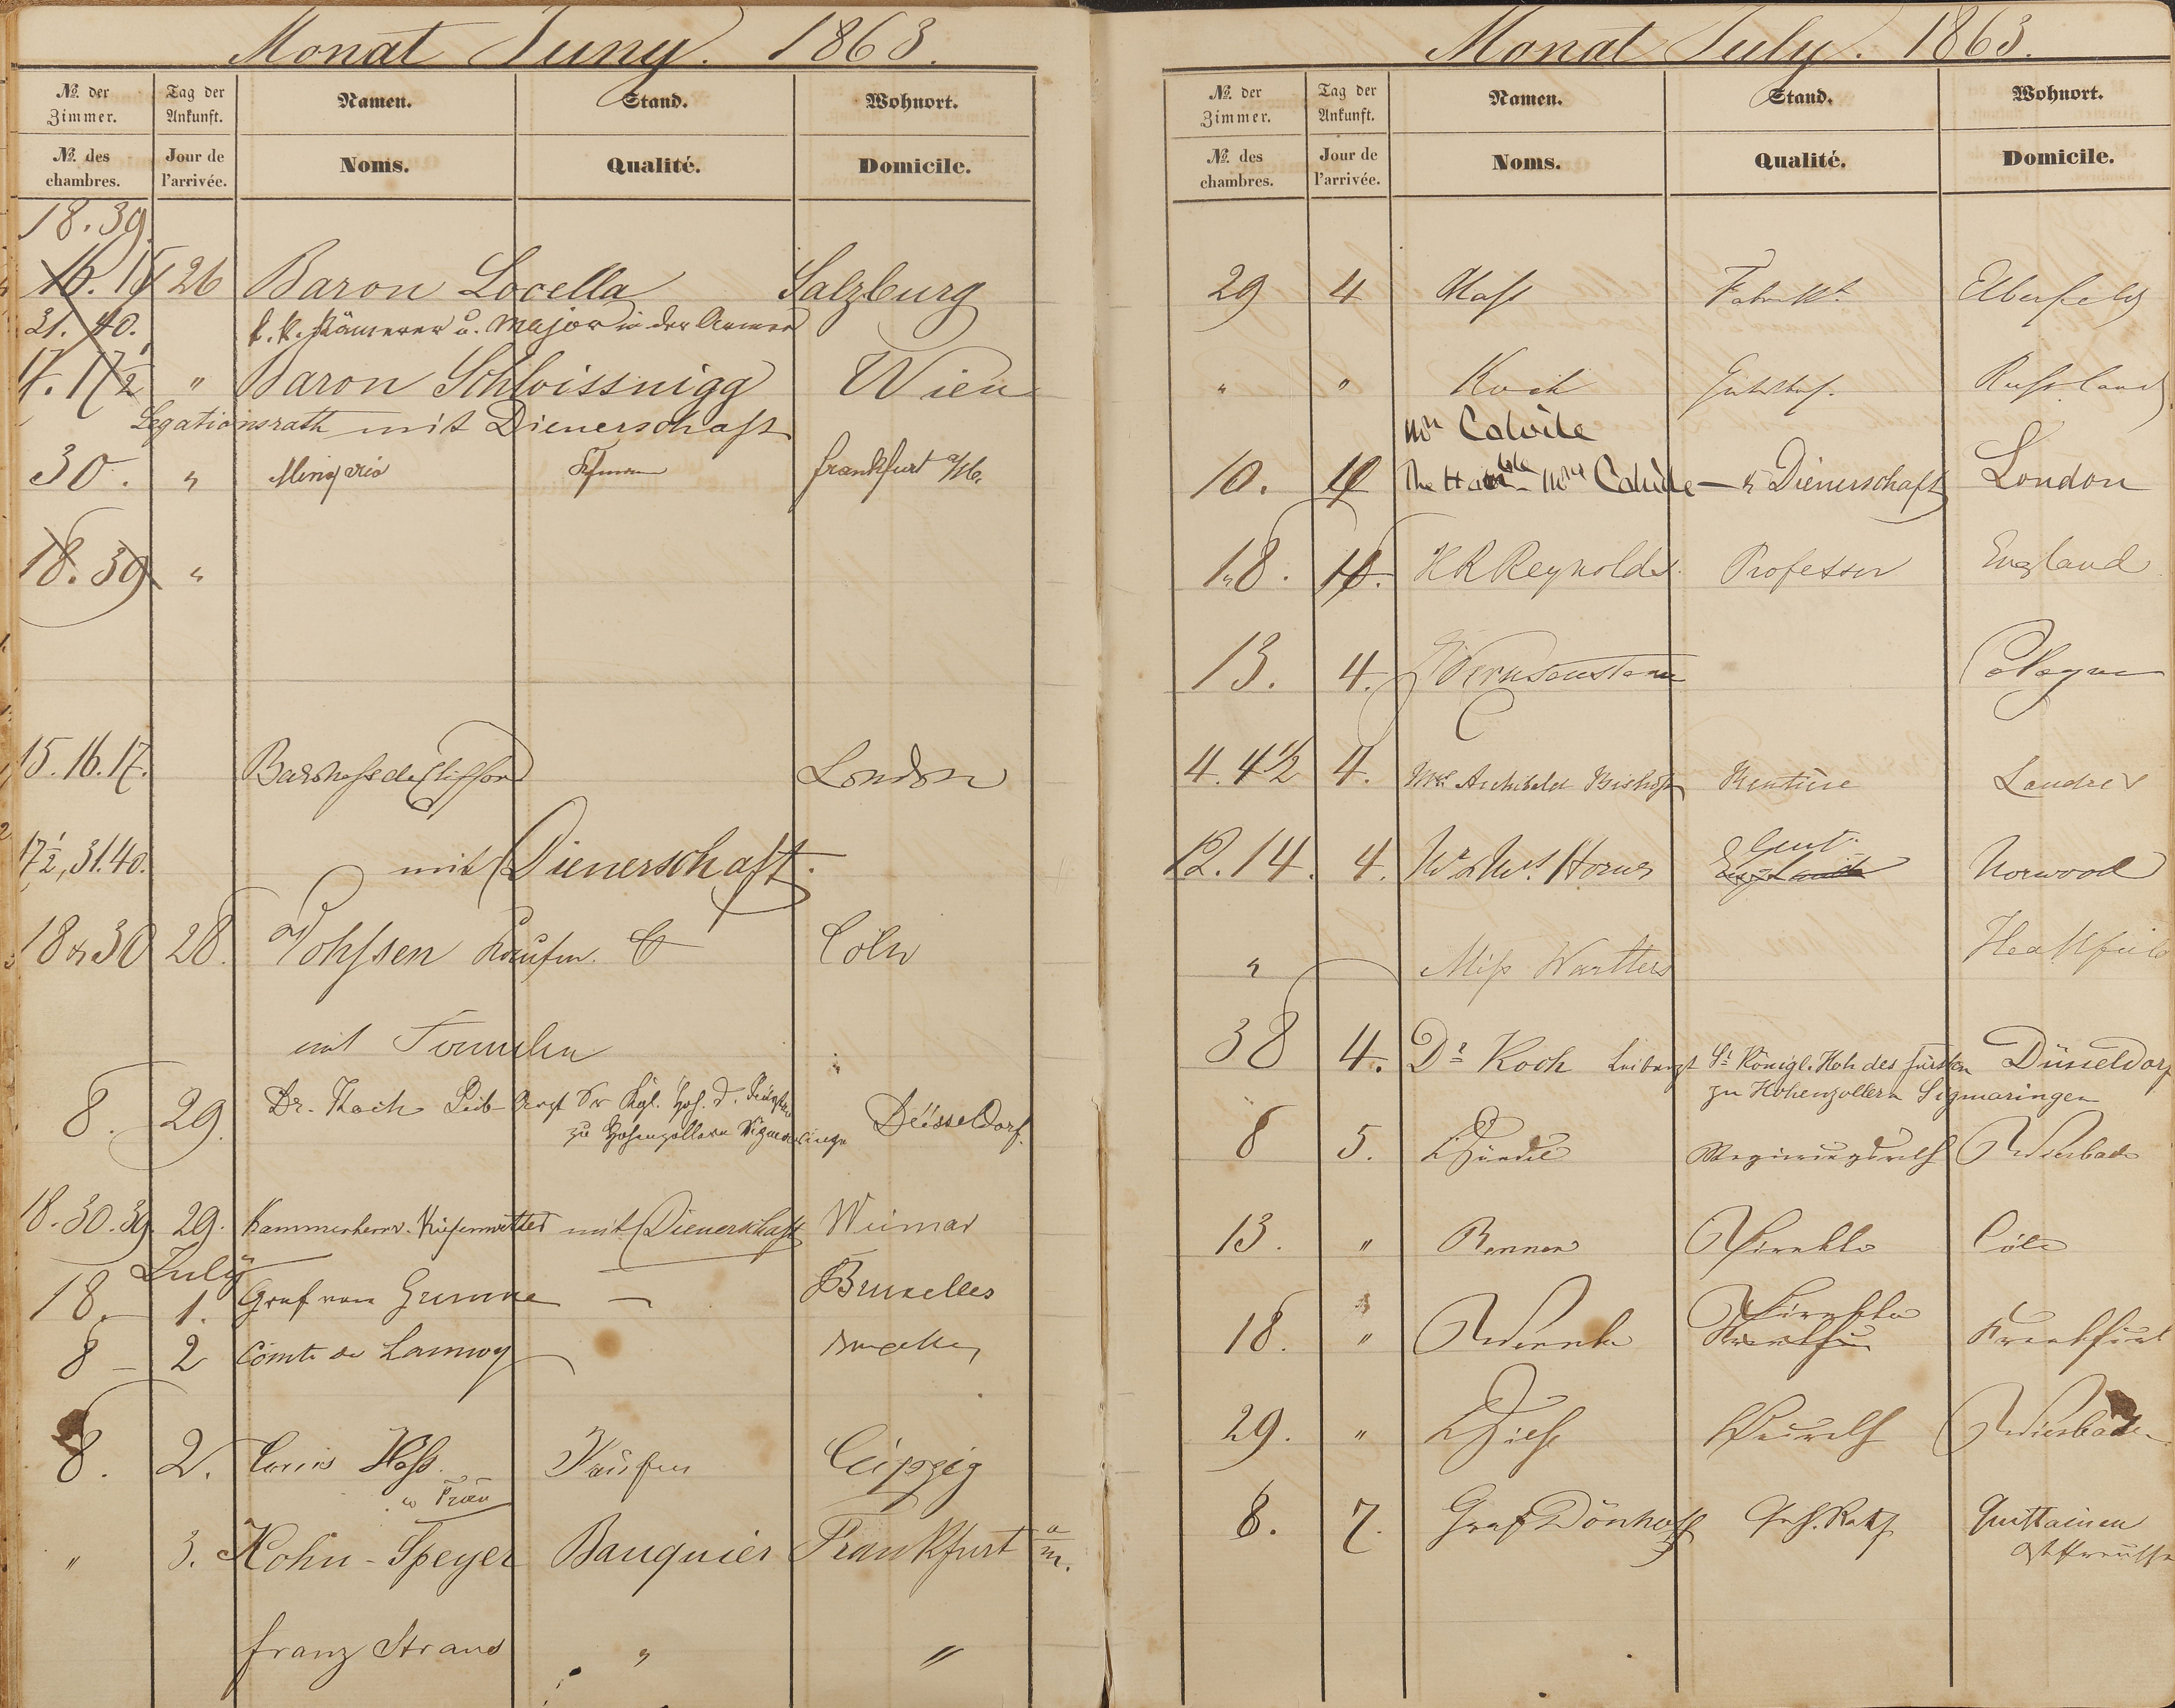 Monat Juny. 1863.
№ der Zimmer. Tag der Ankunft. Namen. Stand. Wohnort.
№ des chambres. Jour de l'arrivée. Noms. Qualité. Domicile.
18. 39.
16. 26 Baron Locella Salzburg
31. 40. k. k. Kämerer u. Major in der Armee
17. 17½ " Baron Schloissnigg Wien
Legationsrath mit Dienerschaft
30. " Frankfurt a/M.
18. 39 "
15. 16. 17. de Clifford London
17½, 31. 40. mit Dienerschaft.
18 & 30 28. Kaufm. Cöln
mit
8. 29. Dr. Koch Leib-Arzt Sr Kgl. Hoh. d. Fürsten
zu Hohenzollern Sigmaringen Düsseldorf.
18. 30. 39. 29. Kammerherr v. mit Dienerschaft Weimar
July
18. 1. Graf von Grunne — Bruxelles
8 – 2 Comte de Lannoy Bruxelles
8. 2. Louis Hoß Kaufm Leipzig
u Frau
" 3. Kohn-Speyer Banquier Frankfurt a/m.
Franz Straus " "
Monat July. 1863.
№ der Zimmer. Tag der Ankunft. Namen. Stand. Wohnort.
№ des chambres. Jour de l'arrivée. Noms. Qualité. Domicile.
29 4 Haß Fabrikt. Elberfeld
" " Koch Gutsbes. Russland
Mr Colvile
10. The Honble Mrs Colvile — & Dienerschaft London
18. H R Reynolds. Professor England
13. 4. Cologne
4. 4½ 4. Mrs Archibald Bishop Rentière Londres
Gent.
12. 14. 4. Mr & Mrs. Horner England Norwood
" Miss Heathfield
38 4. Dr Koch Leibarzt Sr Königl. Hoh des Fürsten Düsseldorf
zu Hohenzollern Sigmaringen
8 5. Regierungsrath Wiesbaden
13. " Renner Direktor Cöln
Direktor
18. " Frankfurt
29. " Wiesbaden
8. 7. Graf Dönhoff Geh. Rath Quittainen
Ostpreußen